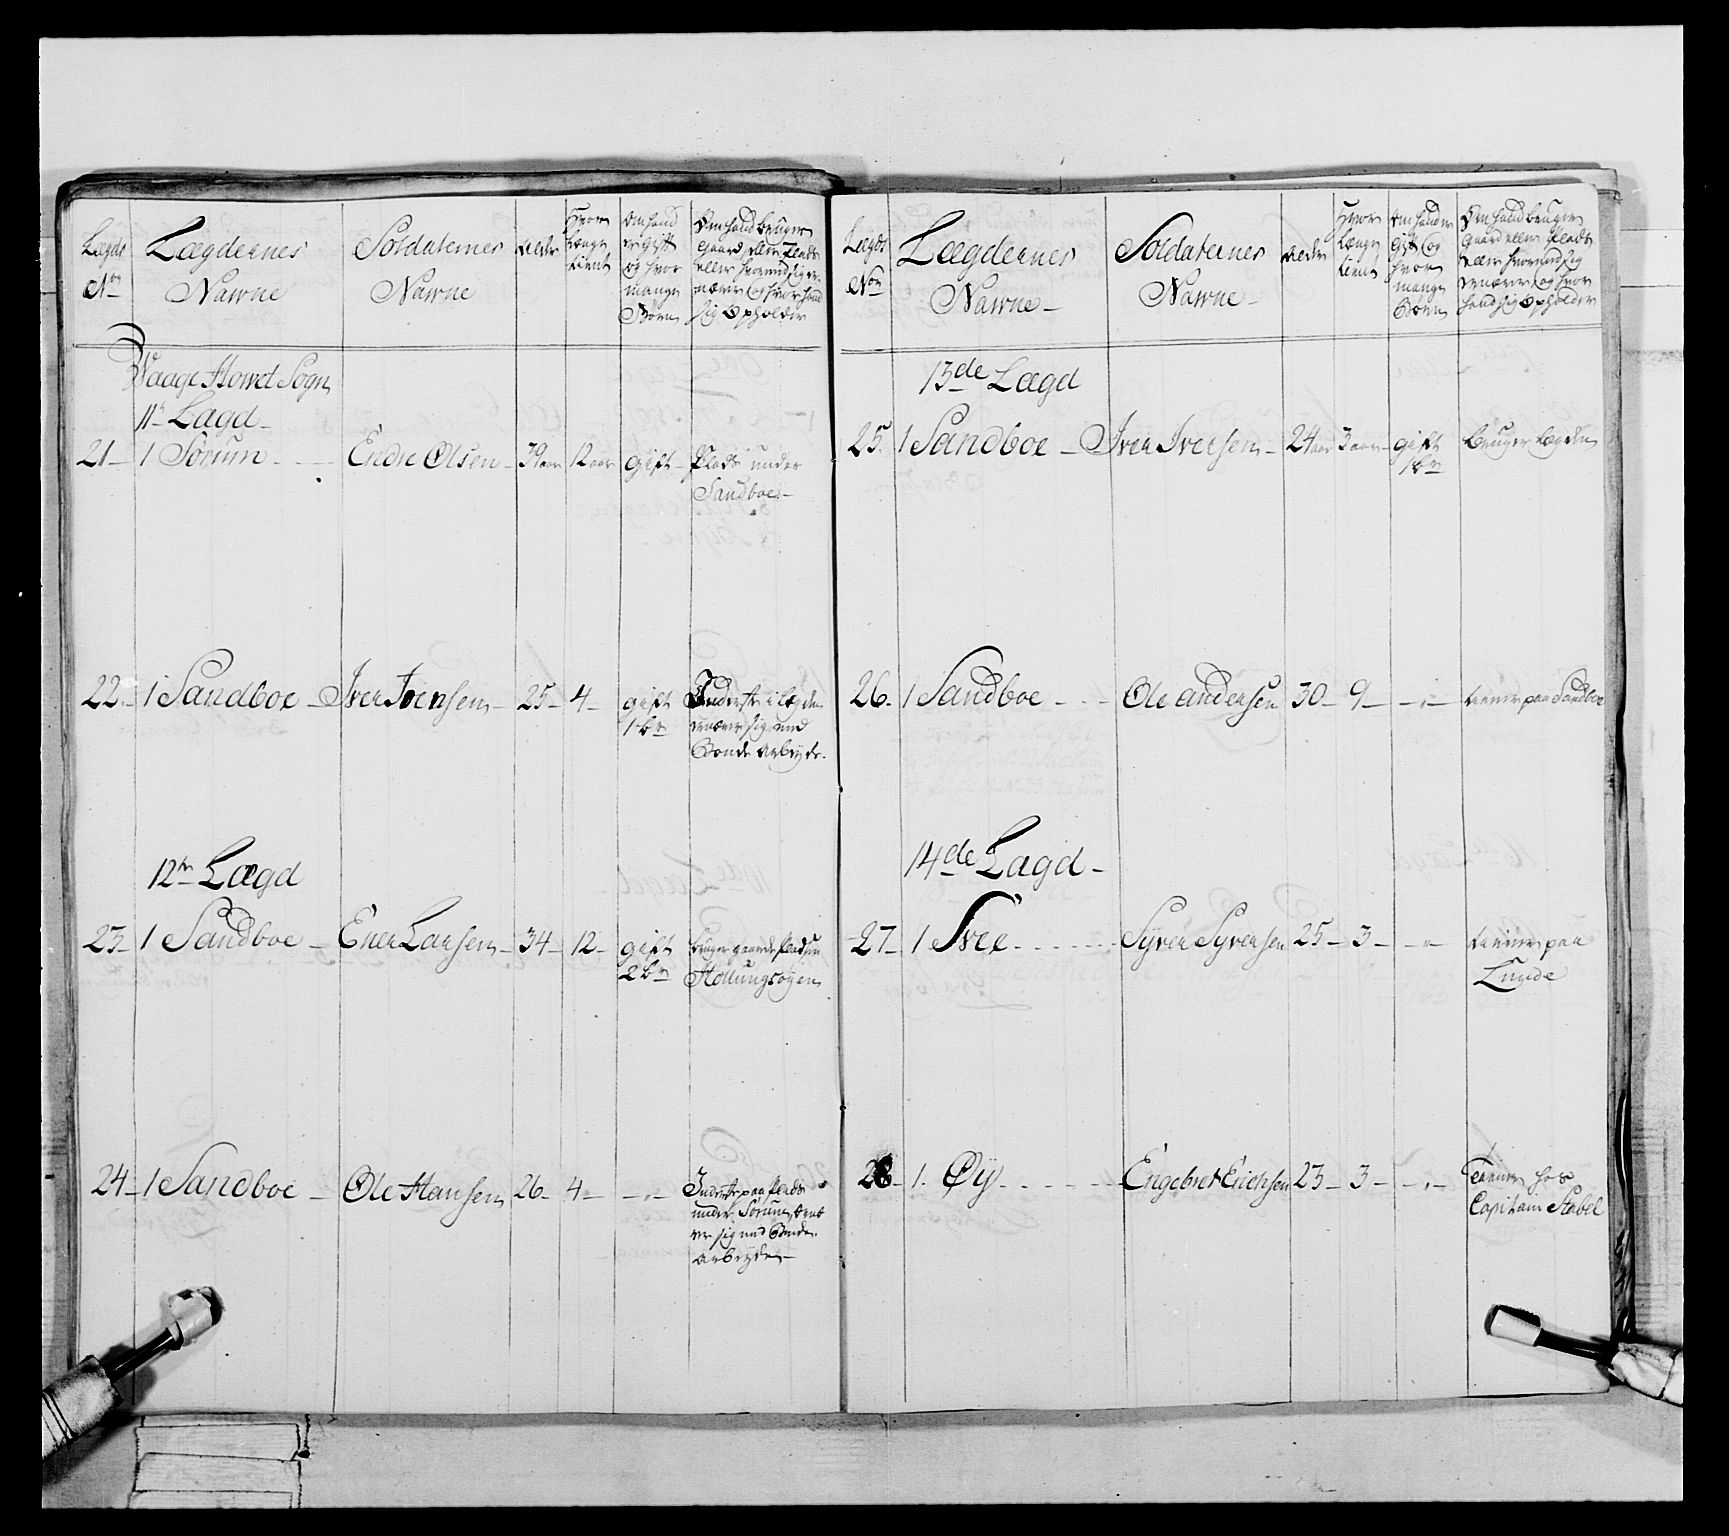 Lægds No
Lægdernes Nawne
Soldaternes Nawne
Alder
Hvor længe tient
Om hand er gift og hvor mange Børn
Om hand bruger Gaard eller Plads eller hvormed sig er nærer og hvor hand sig Opholder
Vaage Howet Sogn
11te Lægd
21 1 Sörum Endre Olsen 39 aar 12 aar gift Plads under
Sandboe
22 1 Sandboe Iver Iversen 25 4 gift Inderst i Lægden
1 bn ernærer sig med
Bonde Arbeyde
12te Lægd
23 1 Sandboe Ener Larsen 34 12 gift bruger gaarde Pladsen
2 bn Hollungsøyen
24 1 Sandboe Ole Hansen 26 4 Inderst paa Plads
under Sörum, ernæ
rer sig med Bonde
arbeyde
Lægds No
Lægdernes Nawne
Soldaternes Nawne
Alder
Hvor længe tient
Om hand er Gift og hvor mange Børn
Om hand bruger Gaard eller Plads eller hvormed sig ernærer og hvor hand sig Opholder
13de Lægd
25 1 Sandboe Iver Iversen 24 aar 3 aar gift bruger Lægden
1 bn
26 1 Sandboe Ole Andersen 30 9 tienner paa Sandboe
14de Lægd
27 1 Svee Syver Syversen 25 3 tienner paa
Lunde
28 1 Øy Engebret Erichsen 23 3 Tienner hos
Capitain Stabel